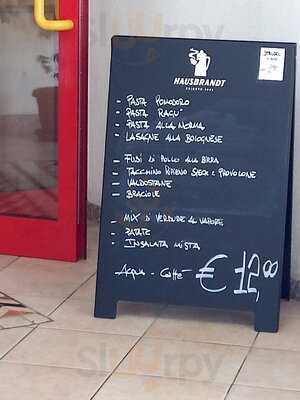 HAUSBRANDT
TRIESTE 1892
- PASTA POMODORO
- PASTA RAGU'
- PASTA ALLA NORMA
- LASAGNE ALLA BOLOGNESE
- FUSI DI POLLO ALLA BIRRA
- TACCHINO RIPIENO SPECK E PROVOLONE
- VALDOSTANE
- BRACIOLE
- MIX DI VERDURE AL VAPORE
- PATATE
- INSALATA MISTA
ACQUA - CAFFE' € 12,00